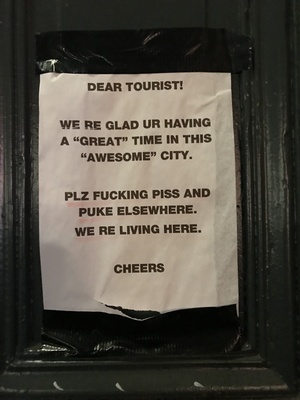 DEAR TOURIST!
WE RE GLAD UR HAVING
A “GREAT” TIME IN THIS
“AWESOME” CITY.
PLZ FUCKING PISS AND
PUKE ELSEWHERE.
WE RE LIVING HERE.
CHEERS